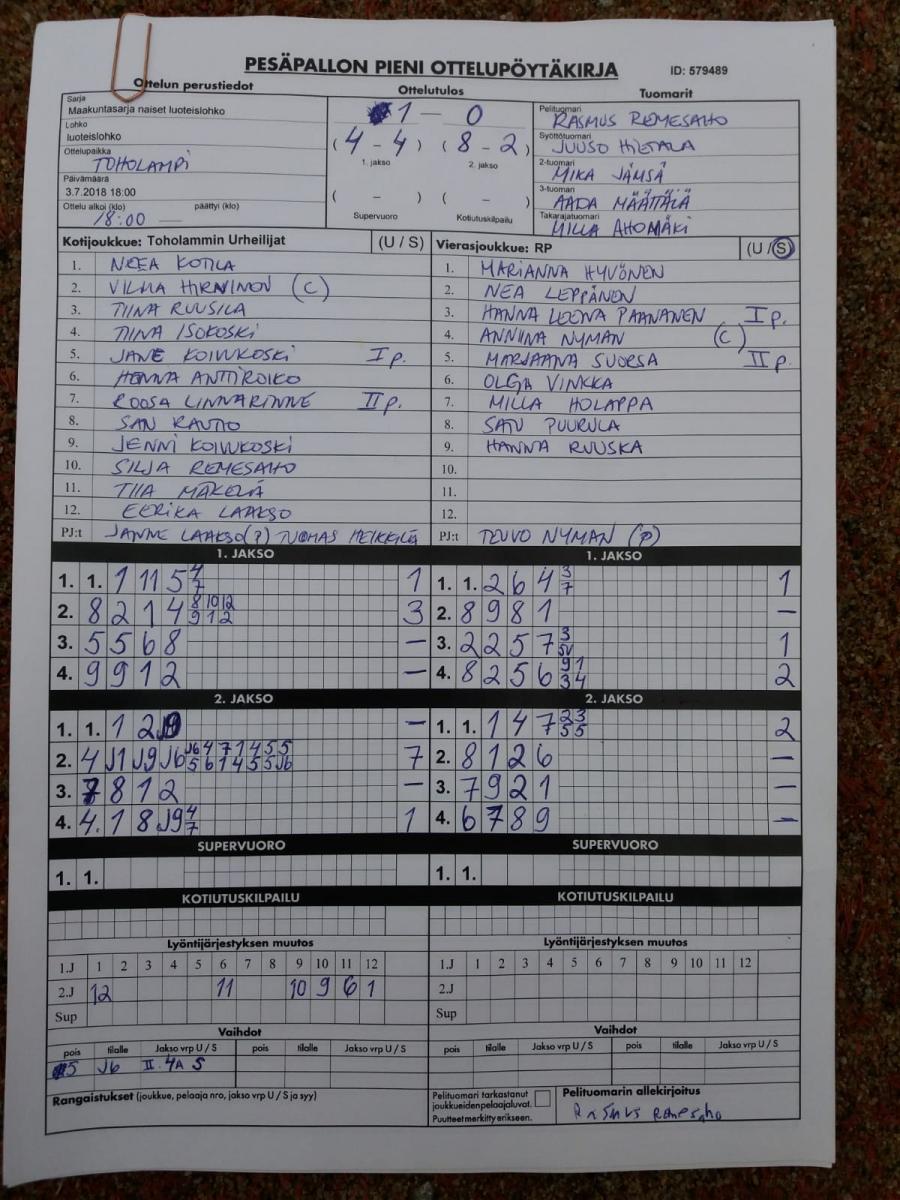 PESÄPALLON PIENI OTTELUPÖYTÄKIRJA
ID: 579489
Ottelun perustiedot
Ottelutulos
Tuomarit
Sarja
Maakuntasarja naiset luoteislohko
Lohko
luoteislohko
Ottelupaikka
TOHOLAMPI
Päivämäärä
3.7.2018 18:00
Ottelu alkoi (klo) päättyi (klo)
18:00 —
1 — 0
(4 - 4) (8 - 2)
1. jakso 2. jakso
( - ) ( - )
Supervuoro Kotiutuskilpailu
Pelituomari
RASMUS REMESAHO
Syöttötuomari
JUUSO HIETALA
2-tuomari
MIKA JÄMSÄ
3-tuomari
AADA MÄÄTTÄLÄ
Takarajatuomari
MILLA AHOMÄKI
Kotijoukkue: Toholammin Urheilijat (U / S)
1. NEEA KOTILA
2. VILMA HIRVINEN (C)
3. TIINA RUUSILA
4. TIINA ISOKOSKI
5. JANE KOIVUKOSKI I p.
6. HENNA ANTTIROIKO
7. ROOSA LINNARINNE II p.
8. SAN RAUTIO
9. JENNI KOIVUKOSKI
10. SILJA REMESAHO
11. TIIA MÄKELÄ
12. EERIKA LAAKSO
PJ:t JANNE LAAKSO (P) TUOMAS HEIKKILÄ
Vierasjoukkue: RP (U / S)
1. MARIANNA HYVÖNEN
2. NEA LEPPÄNEN
3. HANNA LEENA PAANANEN I p.
4. ANNIINA NYMAN (C)
5. MARJAANA SUORSA II p.
6. OLGA VINKKA
7. MILLA HOLAPPA
8. SATU PUURULA
9. HANNA RUUSKA
10.
11.
12.
PJ:t TEUVO NYMAN (P)
1. JAKSO
1. 1. 1 11 5 4 7 1
2. 8 2 1 4 8 10 12 9 1 2 3
3. 5 5 6 8 —
4. 9 9 12 —
1. JAKSO
1. 1. 2 6 4 3 7 1
2. 8 9 8 1 —
3. 2 2 5 7 3 1
4. 8 2 5 6 9 1 3 4 2
2. JAKSO
1. 1. 1 2 —
2. 4 J1 J9 J6 J6 4 7 1 4 5 5 5 6 1 4 5 5 J6 7
3. 7 8 1 2 —
4. 4. 1 8 J9 4 7 1
2. JAKSO
1. 1. 1 4 7 2 3 5 5 2
2. 8 1 2 6 —
3. 7 9 2 1 —
4. 6 7 8 9 —
SUPERVUORO
1. 1.
SUPERVUORO
1. 1.
KOTIUTUSKILPAILU
KOTIUTUSKILPAILU
Lyöntijärjestyksen muutos
1.J 1 2 3 4 5 6 7 8 9 10 11 12
2.J 12 11 10 9 6 1
Sup
Lyöntijärjestyksen muutos
1.J 1 2 3 4 5 6 7 8 9 10 11 12
2.J
Sup
Vaihdot
pois tilalle Jakso vrp U / S pois tilalle Jakso vrp U / S
5 J6 II 4A S
Vaihdot
pois tilalle Jakso vrp U / S pois tilalle Jakso vrp U / S
Rangaistukset (joukkue, pelaaja nro, jakso vrp U / S ja syy)
Pelituomari tarkastanut
joukkueidenpelaajaluvat.
Puutteet merkitty erikseen.
Pelituomarin allekirjoitus
Rasmus Remesaho